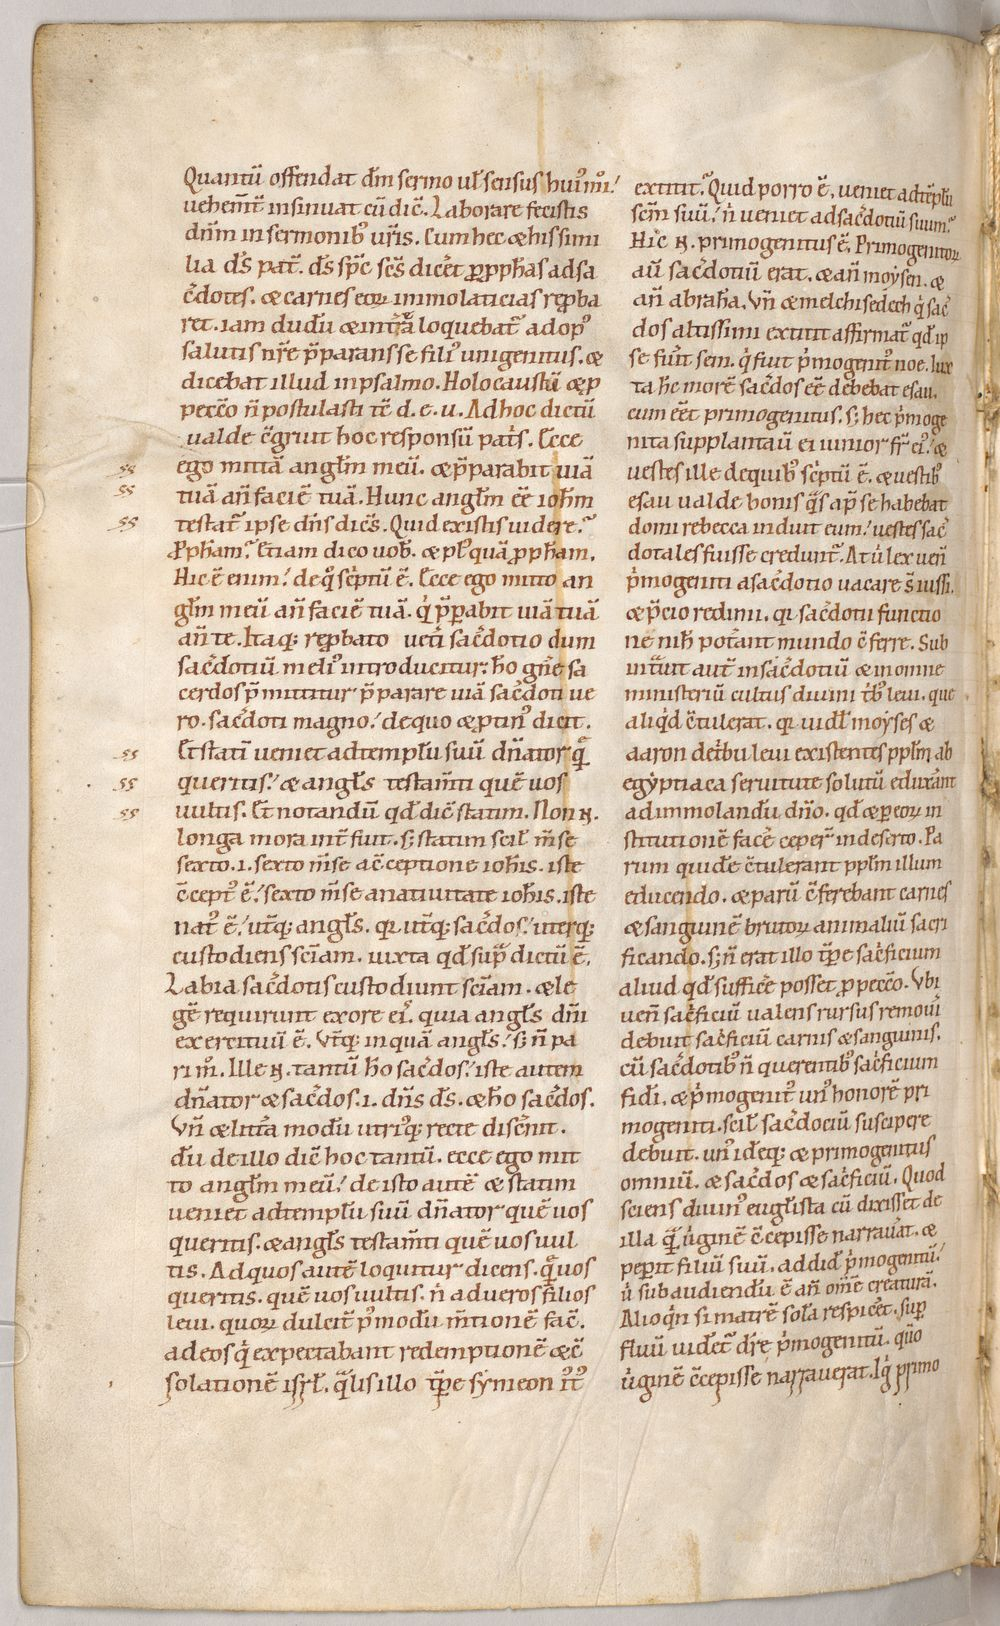 Quantū offendat dm̄ sermo ul̄ sensus hui᷒m̊i.
uehem̄t̄ insinuat cū dic̄. Laborare fecistis
dn̄m in sermonib᷒ ur̄is. Cum hec & his simi
lia ds̄ pat̄. ds̄ sp̄c sc̄s dicēt ꝓpph̄as ad sa
c̄dotes. & carnes eoꝝ immolaticias rep̱ba
ret. iam dudū & int̄ra loquebat̄ ad op᷒
salutis nr̄e p̄parans se fili᷒ unigenitus. &
dicebat illud in psalmo. Holocaustū & p̱
pecc̄o n̄ postulasti tc̄ d. e. u. Ad hoc dictū
ualde c̄gruit hoc responsū pat̄s. Ecce
ego mittā angl̄m meū. & p̄parabit uiā
tuā an̄ faciē tuā. Hunc angl̄m ēē ioh̄m
testat̄ ipse dn̄s dicēs. Quid existis uidere?
ꝓph̄am? Etiam dico uob̄. & pl᷒quā ꝓph̄am.
Hic ē enim. de q̊ sc̄ptū ē. Ecce ego mitto an
gl̄m meū an̄ faciē tuā. q̇ p̄parabit uiā tuā
an̄ te. Itaq; rep̱bato uet̄i sac̄dotio dum
sac̄dotiū meli᷒ introducitur: h̄o gn̄e sa
cerdos p̄mittitur p̄parare uiā sac̄doti ue
ro. sac̄doti magno. de quo & p̱tin᷒ dicit.
Et statī ueniet ad templū suū dn̄ator qͣ
queritis. & angl̄s testam̄ti quē uos
uultis. Et notandū qd̄ dic̄ statim. Non n̄.
longa mora int̄fuit. s; statim scil̄ m̄se
sexto. i. sexto m̄se a c̄ceptione ioh̄is. iste
c̄cept᷒ ē. sexto m̄se a natiuitate ioh̄is. iste
nat᷒ ē. ut̄q; angl̄s. q̄ ut̄q; sac̄dos. ut̄erq;
custodiens sc̄iam. iuxta qd̄ sup̄ dictū ē.
Labia sac̄dotis custodiunt sc̄iam. & le
gē requirunt ex ore ei᷒. quia angl̄s dn̄i
exercituū ē. Vt̄q; inquā angl̄s. s; n̄ pa
ri m̊. Ille n̄. tantū h̄o sac̄dos. iste autem
dn̄ator & sac̄dos. i. dn̄s ds̄. & h̄o sac̄dos.
Vn̄ & litt̄a modū utri᷒q; recte disc̄nit.
dū de illo dic̄ hoc tantū. ecce ego mit
to angl̄m meū. de isto autē & statim
ueniet ad templū suū dn̄ator quē uos
queritis. & angl̄s testam̄ti quē uos uul
tis. Ad quos autē loquitur dicens. qͣ uos
queritis. quē uos uultis. n̄ ad ueros filios
leui. quoꝝ dulcit̄ p᷒ modū m̄tionē fac̄.
ad eos q̇ expectabant redemptionē & c̄
solationē isrl̄. qͣlis illo tp̄e symeon
extitit. Quid porro ē. ueniet ad tēplū
scm̄ suū. n̄ ueniet ad sac̄dotiū suum?
Hic n̄. primogenitus ē. Primogenitoꝝ
aū sac̄dotiū erat. & an̄ moysen. &
an̄ abrahā. Vn̄ & melchisedech q̇ sac̄
dos altissimi extitit affirmat̄ qd̄ ip
se fūit sem. q̇ fuit p̄mogenit᷒ noe. Iux
ta h̄c morē sac̄dos ēē debebat esau.
cum eēt primogenitus. s; hec p̄moge
nita supplantauı̄ ei iunior fr̄ ei᷒. &
uestes ille de quib᷒ sc̄ptū ē. & uestib᷒
esau ualde bonis qͣs ap̄ se habebat
domi rebecca induit eum. uestes sac̄
dotales fuisse credunt̄. At u̇ lex uen̄
p̄mogeniti a sac̄dotio uacare s̄ iussi.
& p̄cio redimi. q̄ sac̄dotii functio
nē nih̄ potāant mundo c̄ferre. Sub
intͣuit aut̄ in sac̄dotiū & in omne
ministeriū cultus diuini tb᷒ leui. que
aliq̇d c̄tulerat. q̄ uidl̄ moyses &
aaron de tribu leui existentes ppl̄m ab
egyptiaca seruitute solutū eduxānt
ad immolandū dn̄o. qd̄ & p̱ eoꝝ in
stitutionē facē ceper̄ in deserto. Pa
rum quidē c̄tulerant ppl̄m illum
educendo. & parū c̄ferebant carnes
& sanguinē brutoꝝ animaliū sacri
ficando. s; n̄ erat illo tp̄e sac̄ficium
aliud qd̄ sufficē posset p̱ pecc̄o. Vbi
uen̄ sac̄ficiū ualens rursus remoui
debuit sac̄ficiū carnis & sanguinis.
cū sac̄dotib᷒ n̄ querentib᷒ sac̄ficium
fidi. & p̄mogenit᷒ un᷒ honorē pri
mogeniti. scil̄ sac̄dociū suscipere
debuit. un᷒ ideq; & primogenitus
omniū. & sac̄dos & sac̄ficiū. Quod
sciens diuin᷒ eugl̄ista cū dixisset de
illa qͣ u̇ginē c̄cepisse narrauāt. &
pep̄it filiū suū. addid̄ p̄mogenitū.
u̇ subaudiendū ē an̄ om̄ē creaturā.
Alioq̇n si matrē sola respicēt. sup̱
fluū uidet̄ dr̄e p̄mogenitū. quō
u̇ginē c̄cepisse narrauerat. Iḡ primo